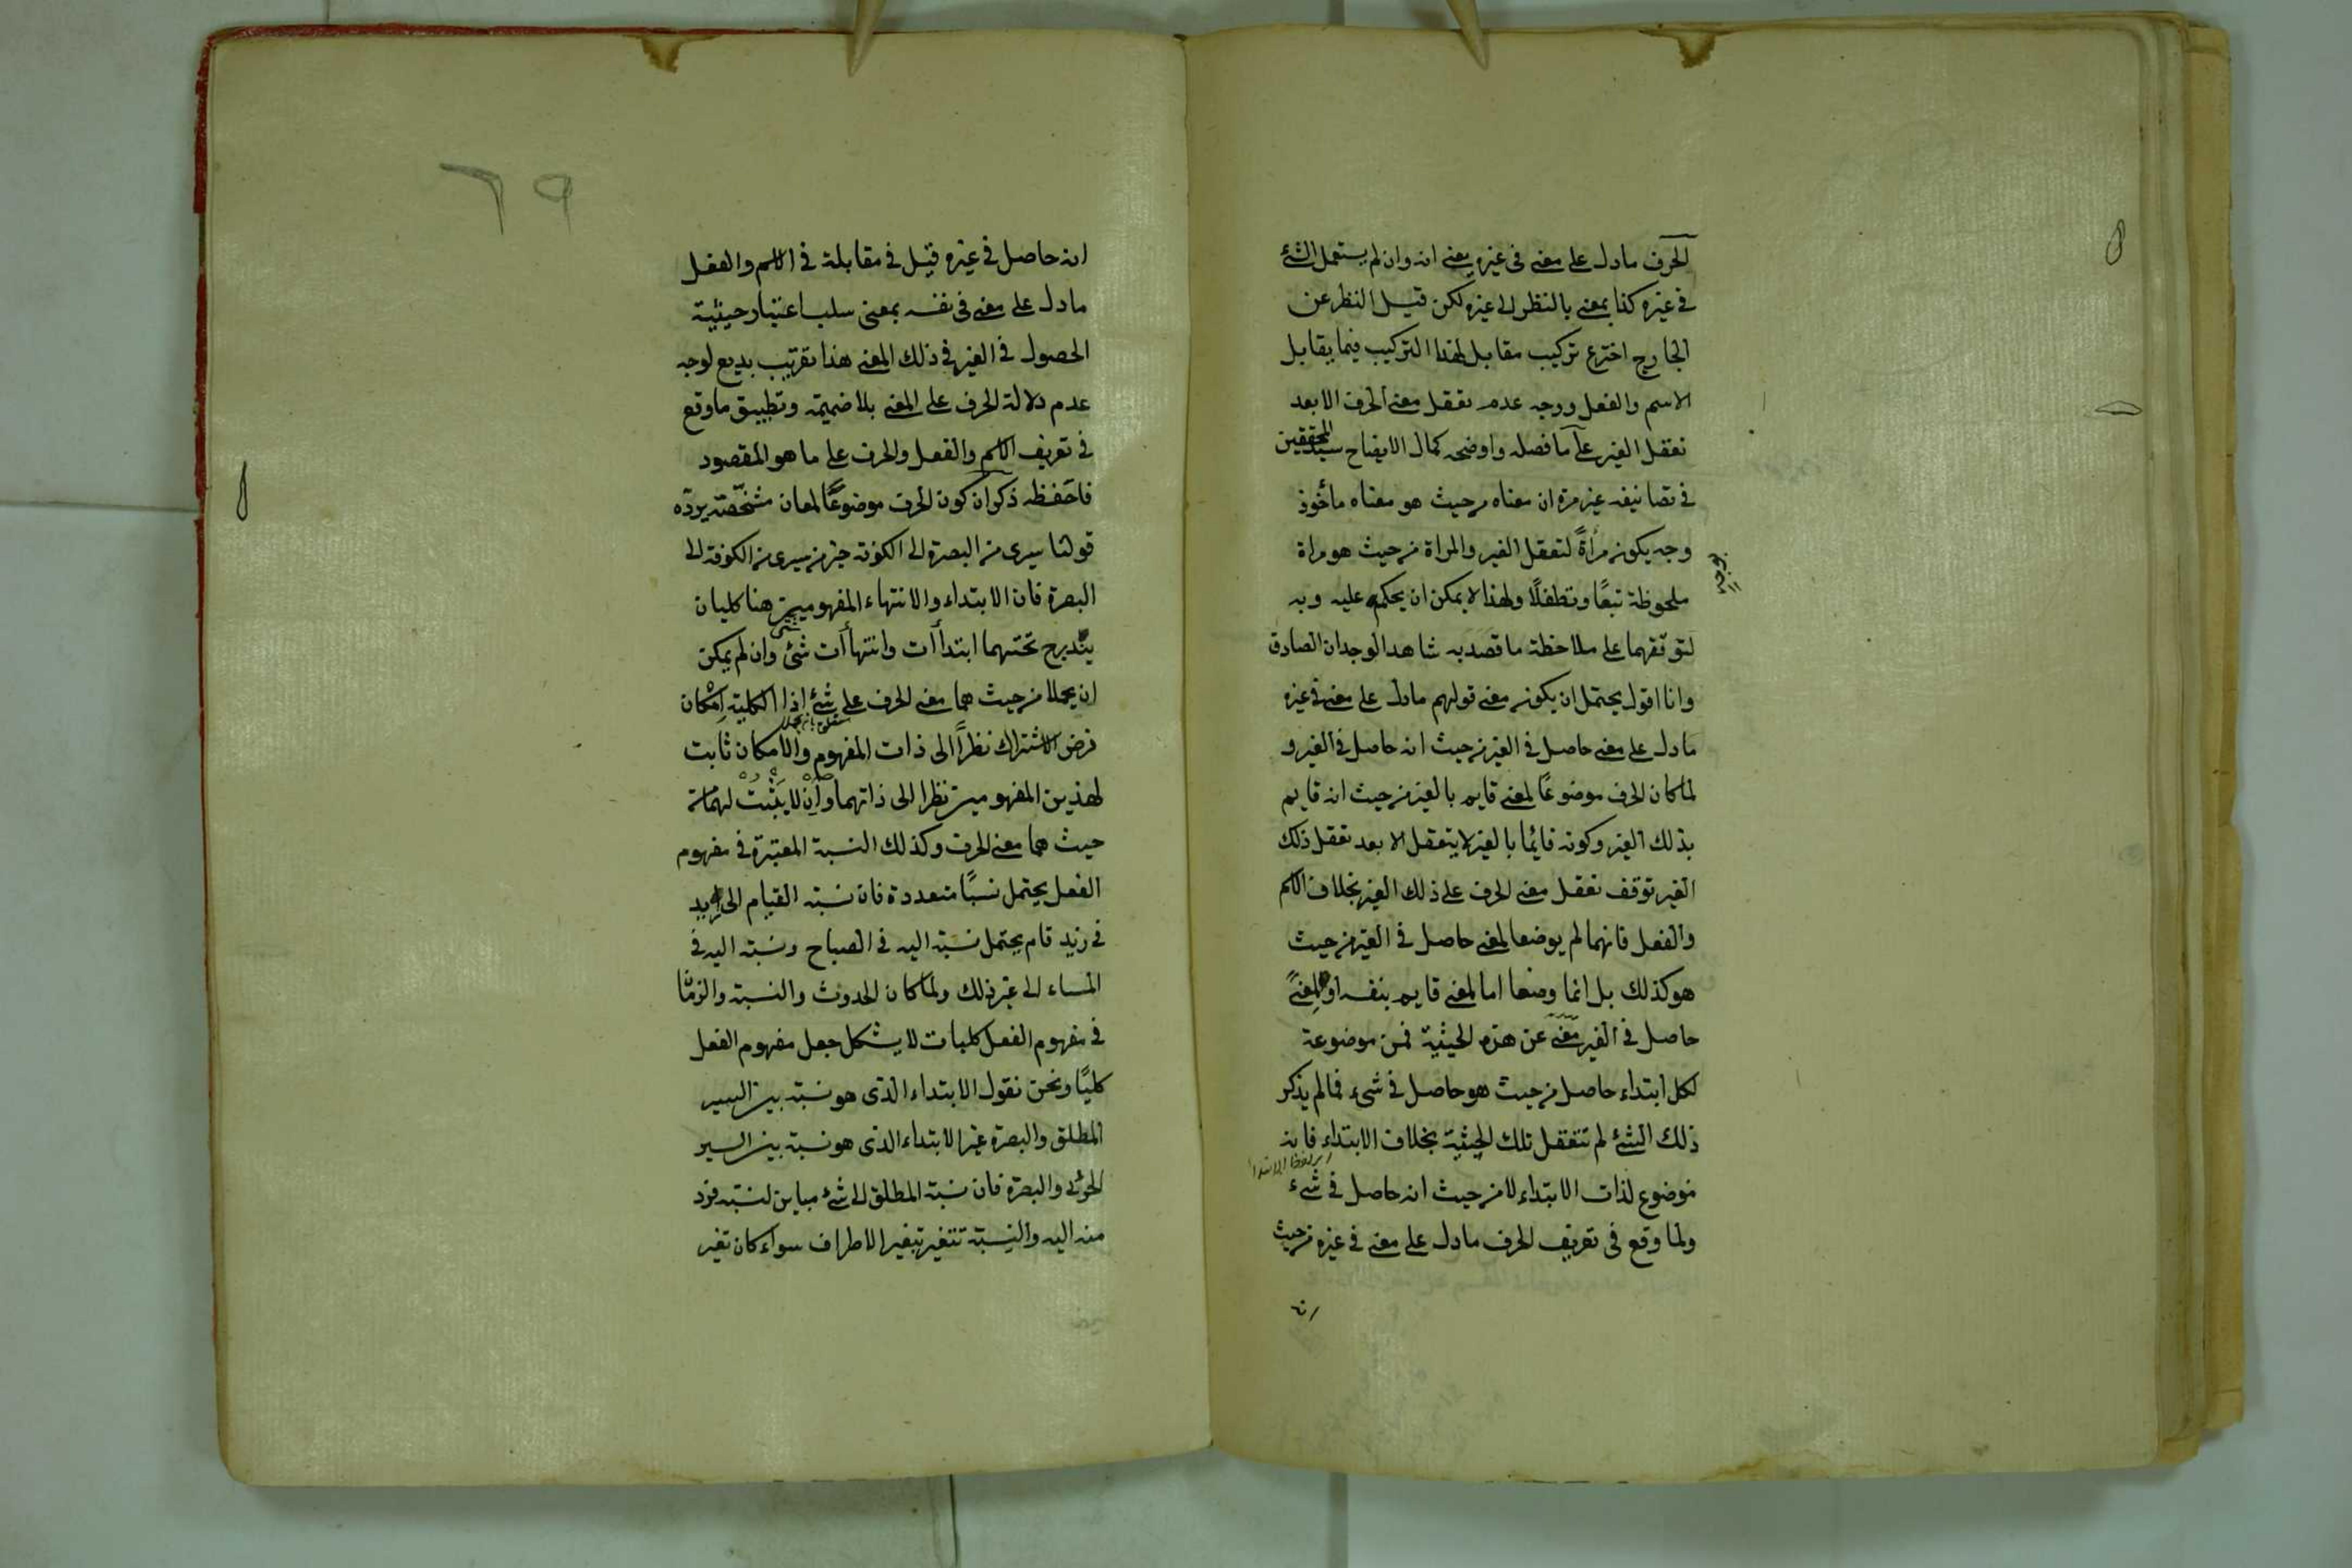 الحرف مادل على معنى فى غيره بمعنى انه وان لم يستعمل الشئ
فى غيره كذا بمعنى بالنظر الى غيره لكن قيل النظر عن
الخارج اخترع تركيب مقابل لهذا التركيب فيما يقابل
الاسم والفعل ووجه عدم تعقل معنى الحرف الا بعد
تعقل الغير على ما فصله واوضحه كمال الايضاح سيد المحققين
فى تصانيفه غير مرة ان معناه من حيث هو معناه مأخوذ
وجه يكون مرأةً لتعقل الغير والمراة من حيث هو مراة
بوجه
ملحوظة تبعًا وتطفلًا ولهذا لا يمكن ان يحكم عليه وبه
لتوقفهما على ملاحظة ما قصد به شاهد الوجدان الصادق
وانا اقول يحتمل ان يكون معنى قولهم مادل على معنى فى غيره
مادل على معنى حاصل فى الغير من حيث انه حاصل فى الغير و
لما كان الحرف موضوعًا لمعنى قايم بالغير من حيث انه قايم
بذلك الغير وكونه قايمًا بالغير لا يتعقل الا بعد تعقل ذلك
الغير توقف تعقل معنى الحرف على ذلك الغير بخلاف الاسم
والفعل فانهما لم يوضعا لمعنى حاصل فى الغير من حيث
هو كذلك بل انما وضعا اما لمعنى قايم بنفسه او لمعنىً
حاصل فى الغير معنى عن هذه الحيثية فمن موضوعة
لكل ابتداء حاصل من حيث هو حاصل فى شىء فما لم يذكر
ذلك الشئ لم تتعقل تلك الحيثية بخلاف الابتداء فانه
اى لفظ الابتداء
موضوع لذات الابتداء لا من حيث انه حاصل فى شىء
ولما وقع فى تعريف الحرف مادل على معنى فى غيره من حيث
انه
٦٩
انه حاصل فى غيره قيل فى مقابلة فى الاسم والفعل
مادل على معنى فى نفسه بمعنى سلب اعتبار حيثية
الحصول فى الغير فى ذلك المعنى هذا تقريب بديع لوجه
عدم دلالة الحرف على المعنى بلا ضميمة وتطبيق ما وقع
فى تعريف الاسم والفعل والحرف على ما هو المقصود
فاحفظه ذكر ان كون الحرف موضوعًا لمعان مشخصة يردّه
قولنا سيرى من البصرة الى الكوفة خير من سيرى من الكوفة الى
البصرة فان الابتداء والانتهاء المفهومين هنا كليان
يندرج تحتهما ابتداآت وانتهاآت شتى وان لم يمكن
ان يحملا من حيث هما معنى الحرف على شئ اذا الكلية امكان
فرض الاشتراك نظرًا الى ذات المفهوم والامكان ثابت
لهذين المفهومين نظرا الى ذاتهما وان لا يثبت لهما من
حيث هما معنى الحرف وكذلك النسبة المعتبرة فى مفهوم
الفعل يحتمل نسبًا متعددة فان نسبة القيام الى زيد
فى زيد قام يحتمل نسبته اليه فى الصباح ونسبته اليه فى
المساء الى غير ذلك ولما كان الحدوث والنسبة والزمان
فى مفهوم الفعل كليات لا يشكل جعل مفهوم الفعل
كليًا ونحن نقول الابتداء الذى هو نسبة بين السير
المطلق والبصرة غير الابتداء الذى هو نسبة بين السير
الجزئى والبصرة فان نسبة المطلق الى شئ مباين لنسبة فرد
منه اليه والنسبة تتغير بتغير الاطراف سواء كان تغير